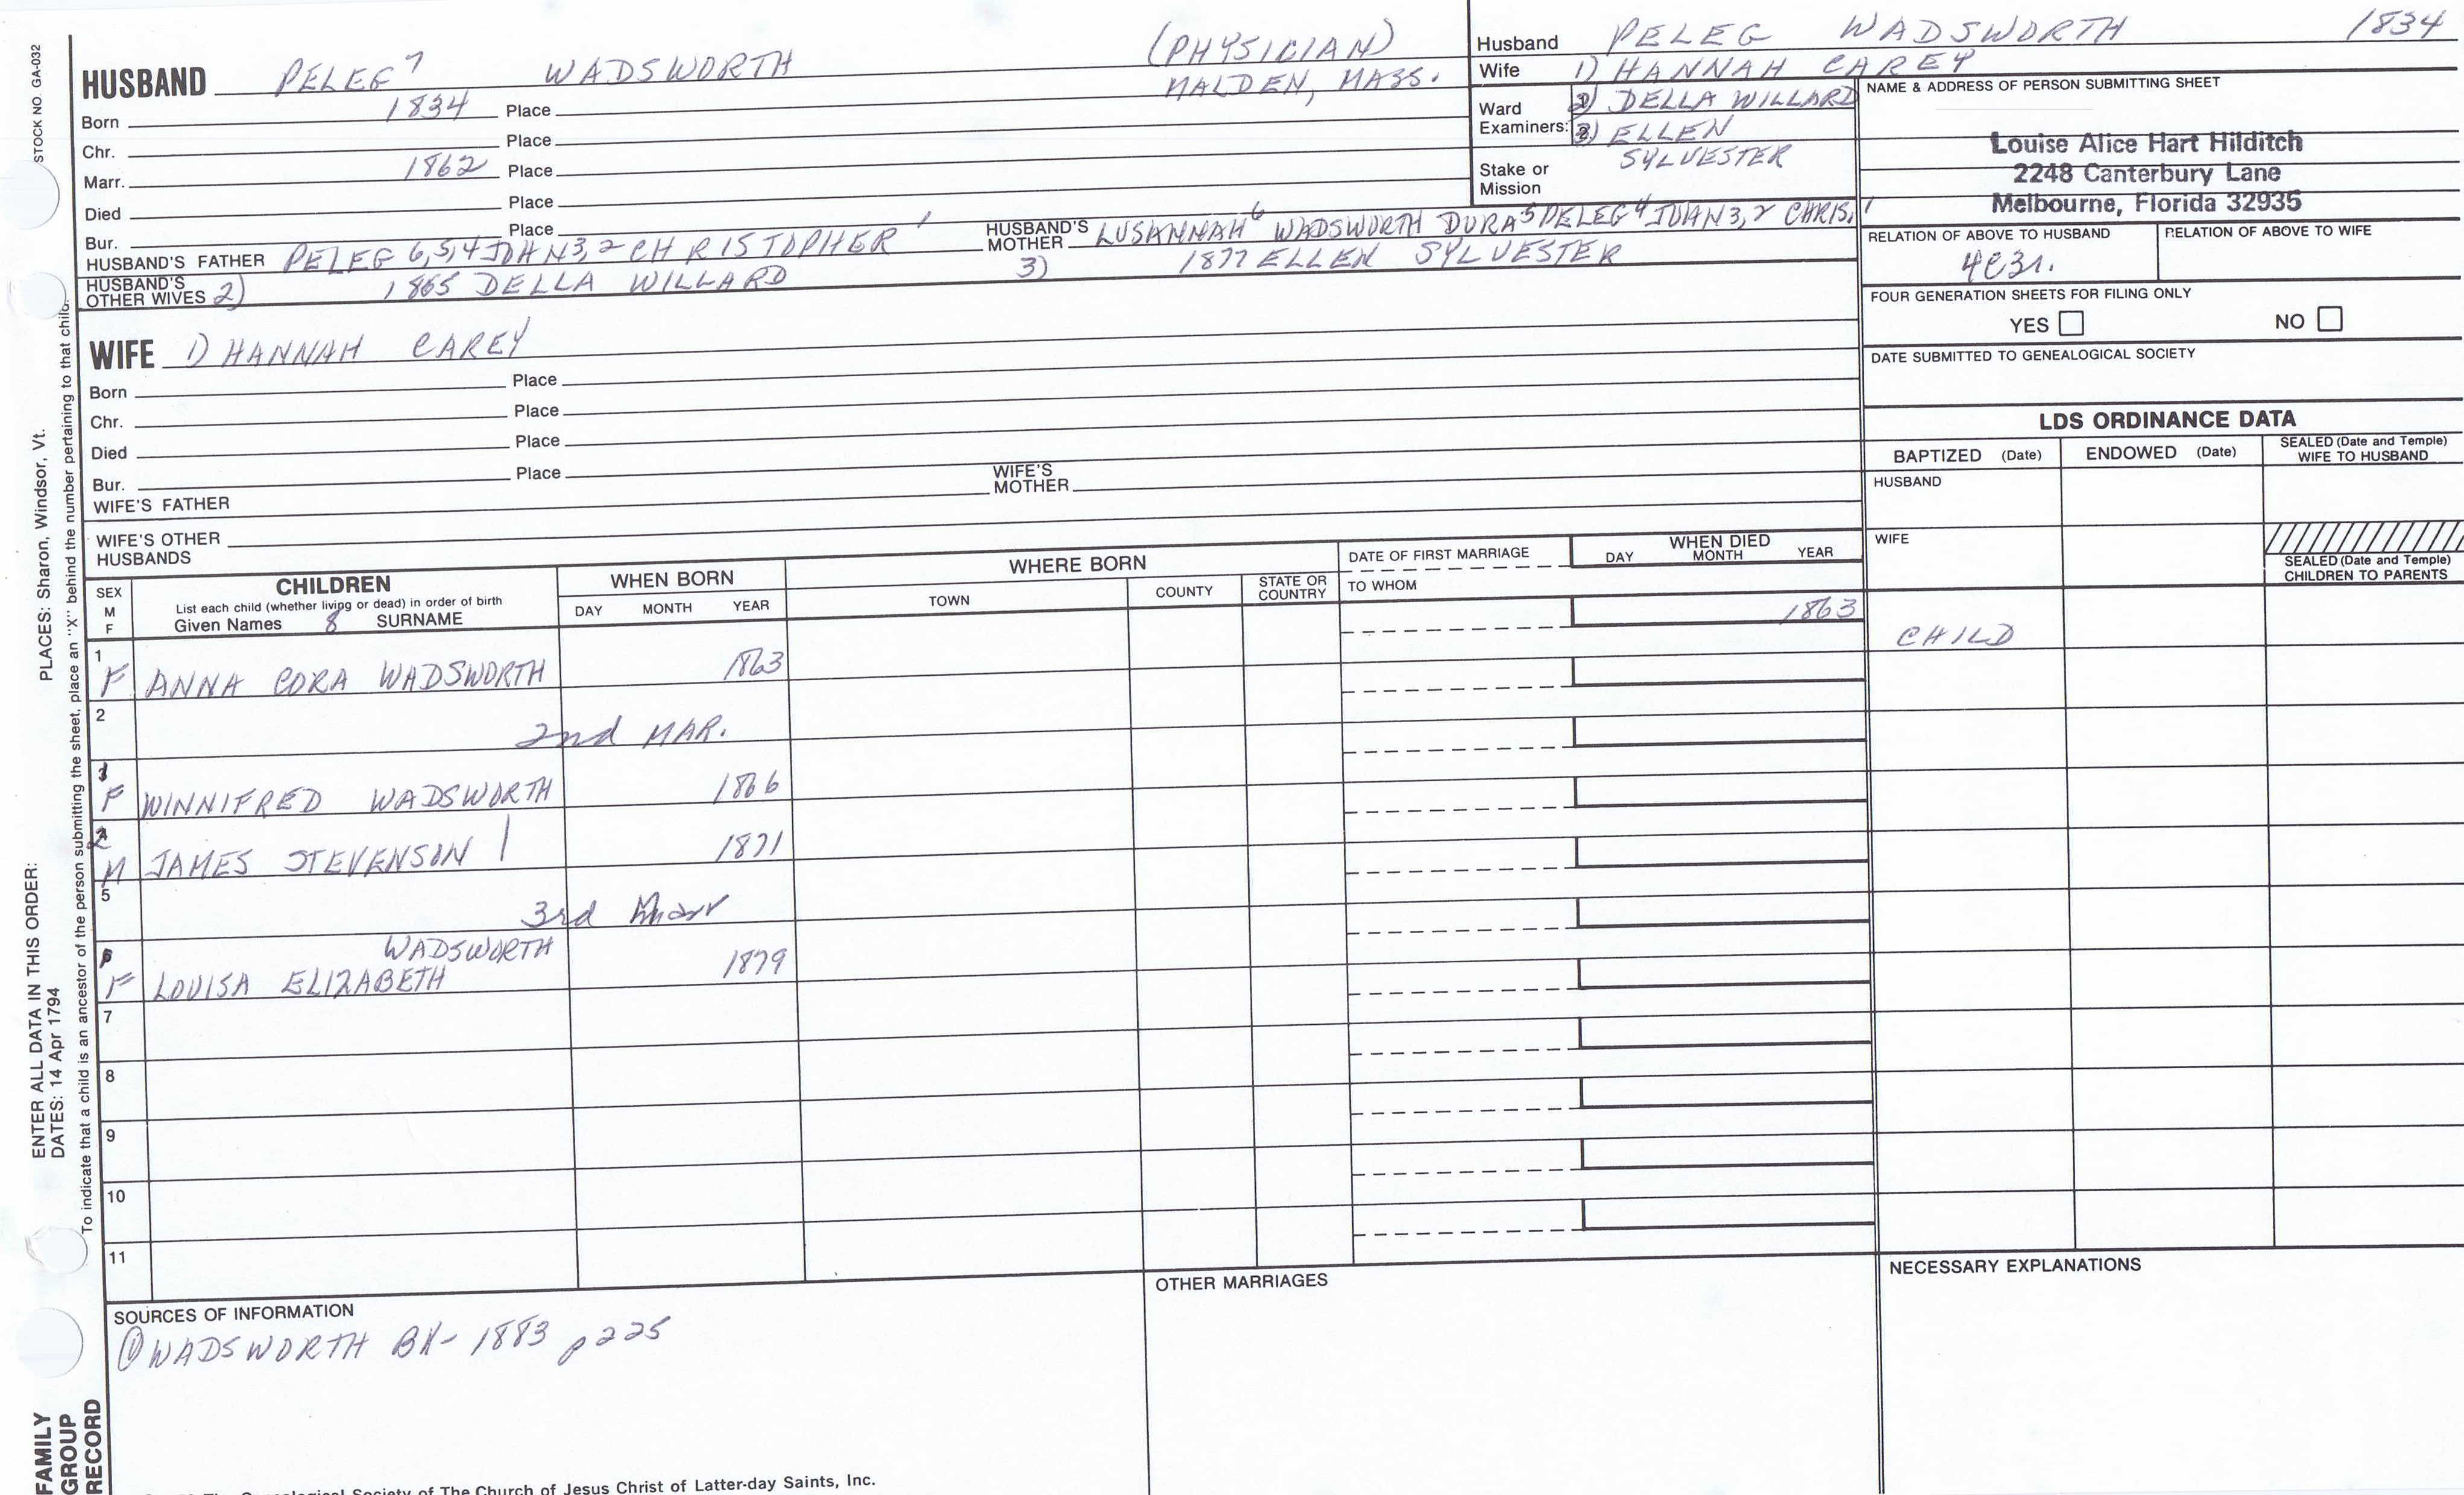 STOCK NO. GA-032
PLACES: Sharon, Windsor, Vt.
ENTER ALL DATA IN THIS ORDER:
DATES: 14 Apr 1794
To indicate that a child is an ancestor of the person submitting the sheet, place an "X" behind the number pertaining to that child.
FAMILY
GROUP
RECORD
HUSBAND PELEG 7 WADSWORTH (PHYSICIAN)
Born 1834 Place MALDEN, MASS.
Chr. Place
Marr. 1862 Place
Died Place
Bur. Place
HUSBAND'S FATHER PELEG 6,5,4 JOHN 3,2 CHRISTOPHER 1 HUSBAND'S MOTHER LUSANNAH 6 WADSWORTH DURA 5 PELEG 4 JOHN 3,2 CHRIS. 1
HUSBAND'S OTHER WIVES 2) 1865 DELLA WILLARD 3) 1877 ELLEN SYLVESTER
WIFE 1) HANNAH CAREY
Born Place
Chr. Place
Died Place
Bur. Place
WIFE'S FATHER WIFE'S MOTHER
WIFE'S OTHER HUSBANDS
Husband PELEG WADSWORTH 1834
Wife 1) HANNAH CAREY
Ward Examiners: 2) DELLA WILLARD
3) ELLEN
SYLVESTER
Stake or Mission
NAME & ADDRESS OF PERSON SUBMITTING SHEET
Louise Alice Hart Hilditch
2248 Canterbury Lane
Melbourne, Florida 32935
RELATION OF ABOVE TO HUSBAND RELATION OF ABOVE TO WIFE
4C3r.
FOUR GENERATION SHEETS FOR FILING ONLY
YES NO
DATE SUBMITTED TO GENEALOGICAL SOCIETY
LDS ORDINANCE DATA
BAPTIZED (Date) ENDOWED (Date) SEALED (Date and Temple) WIFE TO HUSBAND
HUSBAND
WIFE
SEALED (Date and Temple) CHILDREN TO PARENTS
SEX M F
CHILDREN
List each child (whether living or dead) in order of birth
Given Names 8 SURNAME
WHEN BORN
DAY MONTH YEAR
WHERE BORN
TOWN COUNTY STATE OR COUNTRY
DATE OF FIRST MARRIAGE
TO WHOM
WHEN DIED
DAY MONTH YEAR
1 F ANNA CORA WADSWORTH 1863 1863 CHILD
2 2nd MAR.
1 F WINNIFRED WADSWORTH 1866
2 M JAMES STEVENSON 1871
5 3rd Marr
WADSWORTH
F LOUISA ELIZABETH 1879
7
8
9
10
11
SOURCES OF INFORMATION
① WADSWORTH BK- 1883 p225
OTHER MARRIAGES
NECESSARY EXPLANATIONS
Society of The Church of Jesus Christ of Latter-day Saints, Inc.